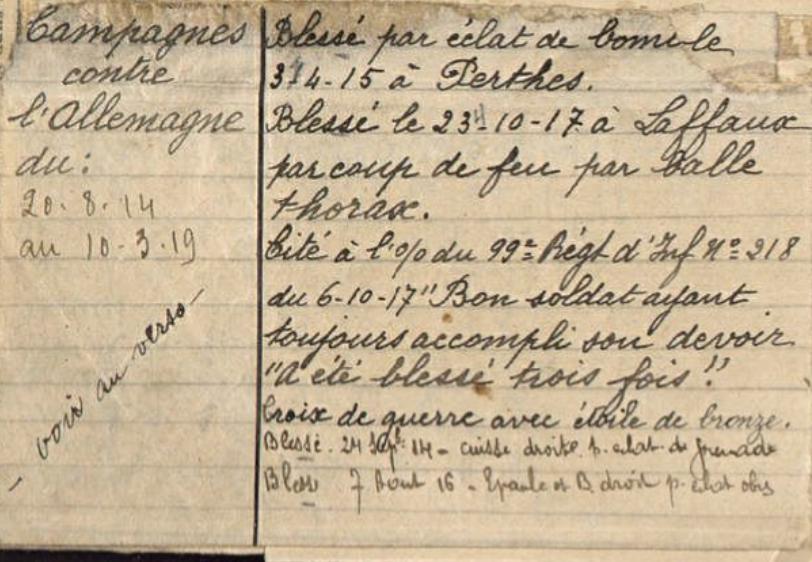 Campagnes
contre
l'Allemagne
du:
20. 8. 14
au 10-3-19
- voir au verso -
Blessé par éclat de bombe
4-15 à Perthes.
Blessé le 23-10-17 à Laffaux
par coup de feu par balle
thorax.
Cité à l'o/ du 99e Régt d'Inf Nº 218
du 6-10-17 "Bon soldat ayant
toujours accompli son devoir
"a été blessé trois fois!"
Croix de guerre avec étoile de bronze.
Blessé. 24 Sept. 14 - cuisse droite p. éclat de grenade
Bles 7 Aout 16 - Epaule et B. droit p. éclat obus